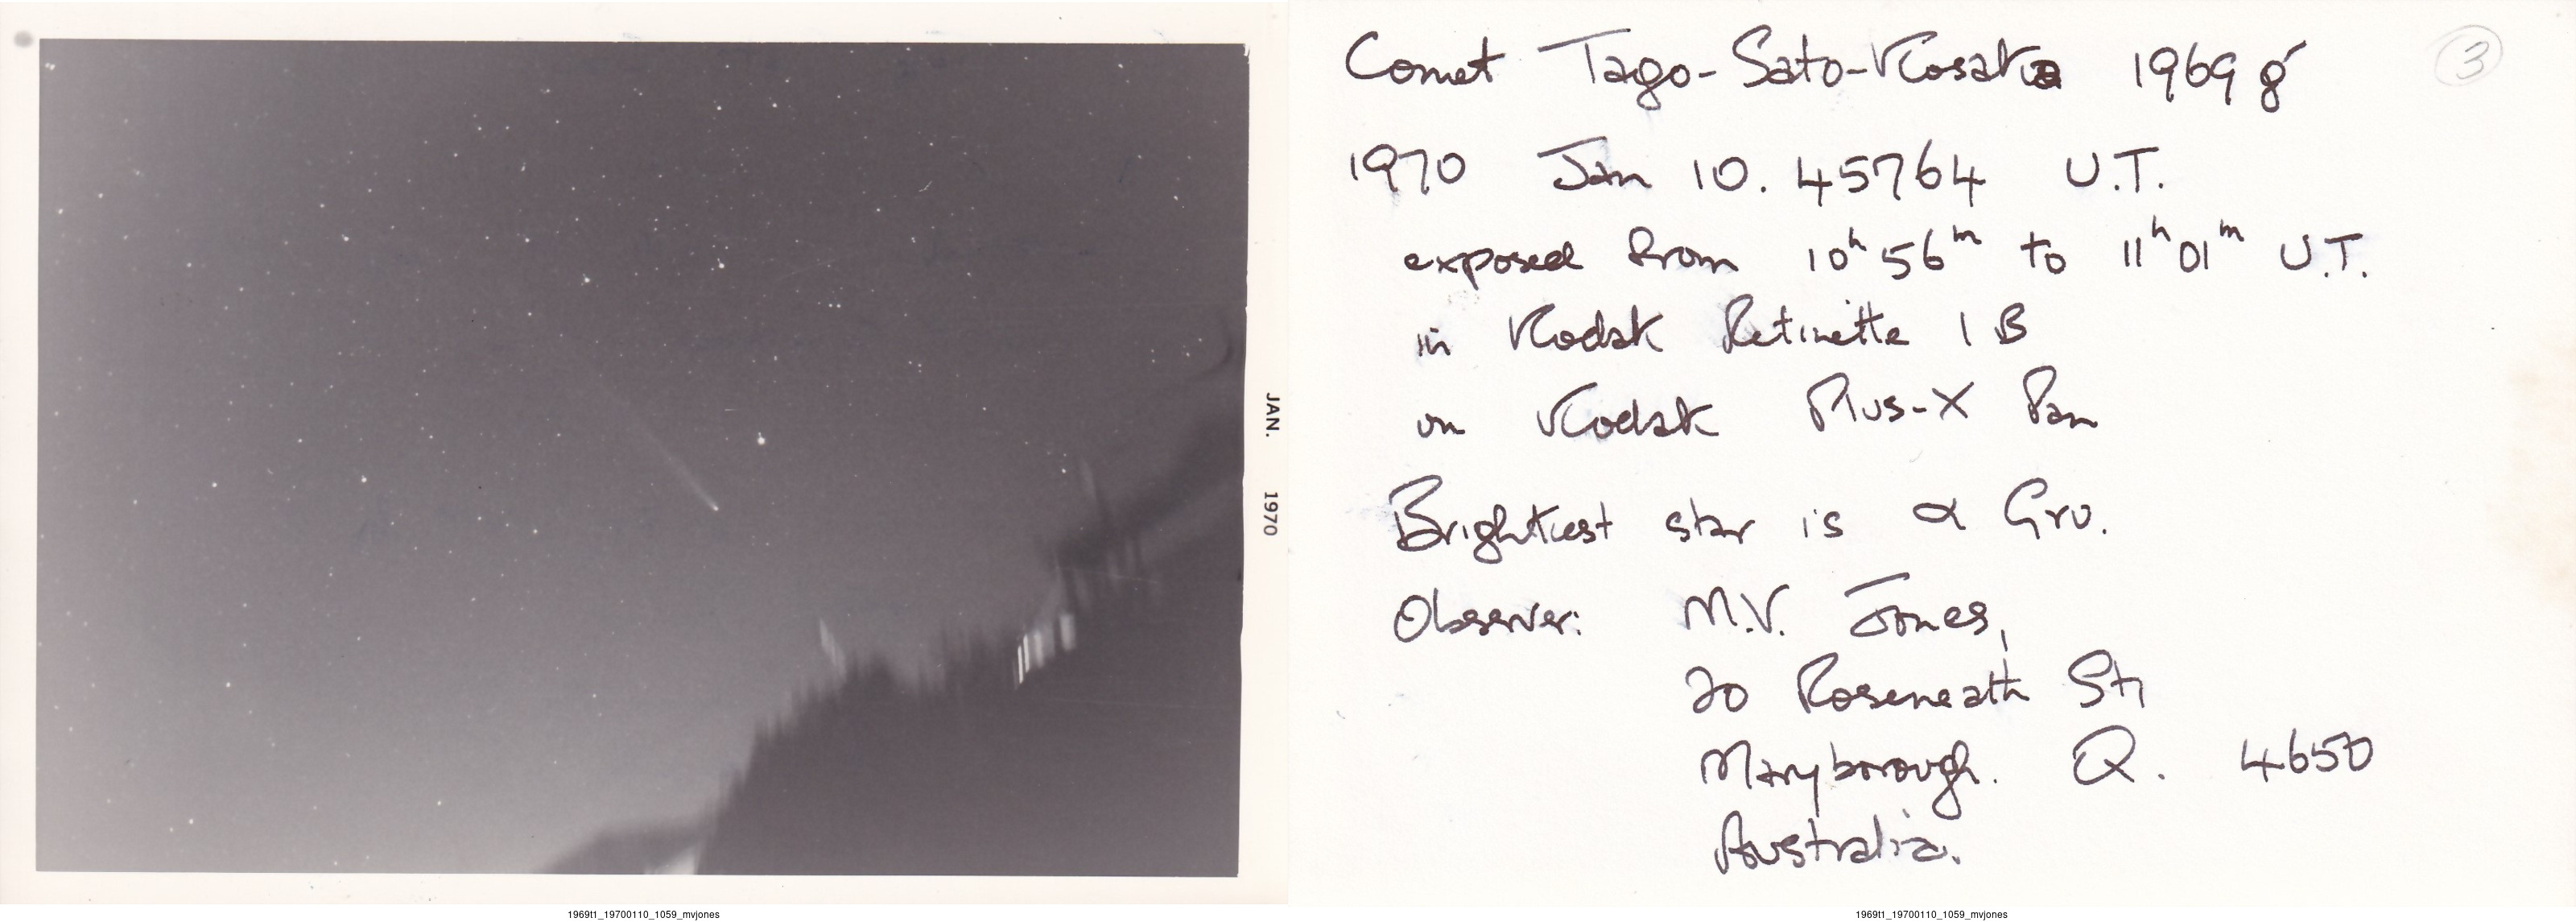 JAN. 1970
Comet Tago-Sato-Kosaka 1969g
3
1970 Jan 10.45764 U.T.
exposed from 10h 56m to 11h 01m U.T.
in Kodak Retinette 1 B
on Kodak Plus-X Pan
Brightest star is α Gru.
Observer: M.V. Jones,
20 Roseneath St,
Maryborough. Q. 4650
Australia.
1969t1_19700110_1059_mvjones
1969t1_19700110_1059_mvjones